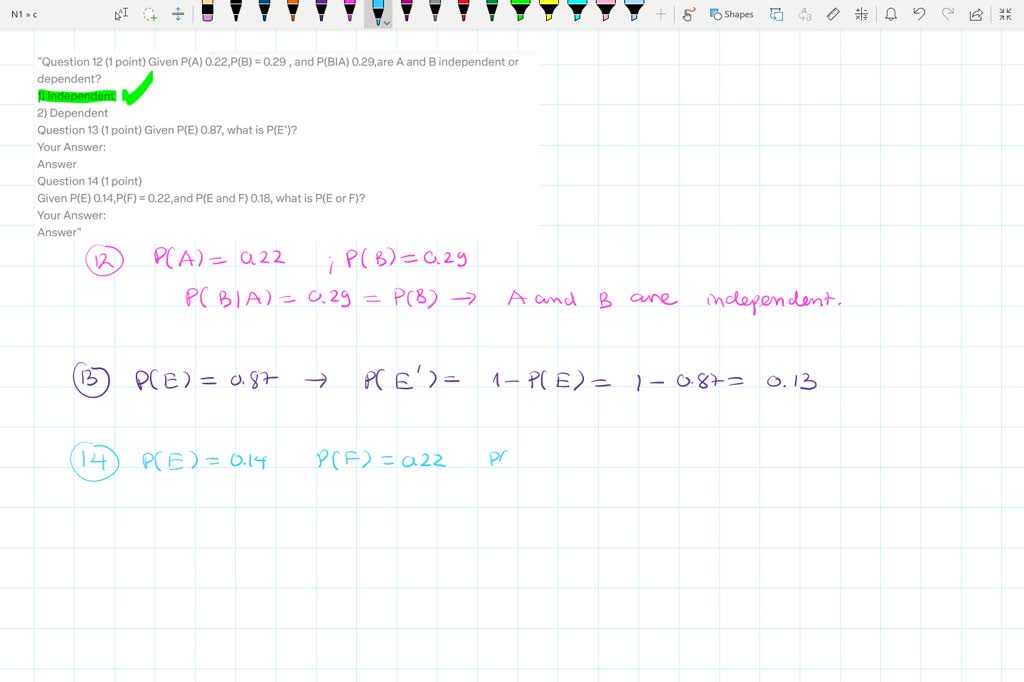 N1 » c
Shapes
"Question 12 (1 point) Given P(A) 0.22,P(B) = 0.29 , and P(BIA) 0.29,are A and B independent or
dependent?
1) Independent
2) Dependent
Question 13 (1 point) Given P(E) 0.87, what is P(E')?
Your Answer:
Answer
Question 14 (1 point)
Given P(E) 0.14,P(F) = 0.22,and P(E and F) 0.18, what is P(E or F)?
Your Answer:
Answer"
12 P(A) = 0.22 ; P(B) = 0.29
P(B|A) = 0.29 = P(B) → A and B are independent.
13 P(E) = 0.87 → P(E') = 1 - P(E) = 1 - 0.87 = 0.13
14 P(E) = 0.14 P(F) = 0.22 P(